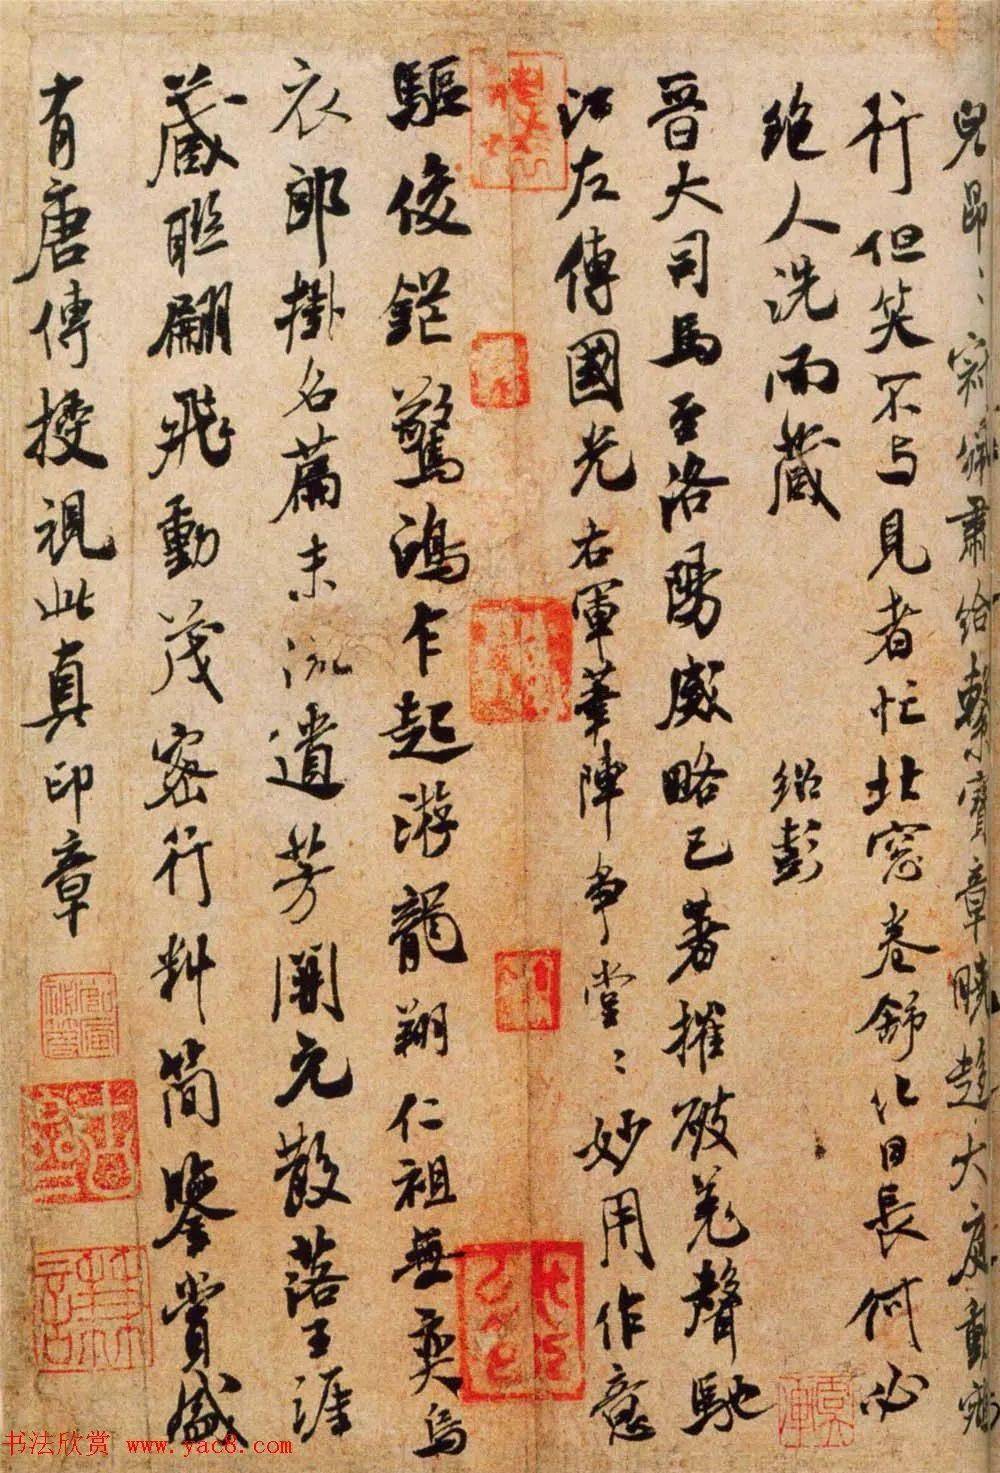 兒昂〻 肅給繫寶章曉趨大庭
行但笑不与見者忙北窓卷舒化日長何必
絶人洗而藏
紹彭
晉大司馬至洛陽威略已著摧破羌聲馳
江左傳國光右軍筆陣爭堂〻妙用作意
驅俊鋩驚鴻乍起游龍翔仁祖無奕烏
衣郎掛名篇末流遺芳開元散落王涯
藏聯翩飛動茂密行料簡鑒賞盛
有唐傳授視此真印章
书法欣赏 www.yac8.com